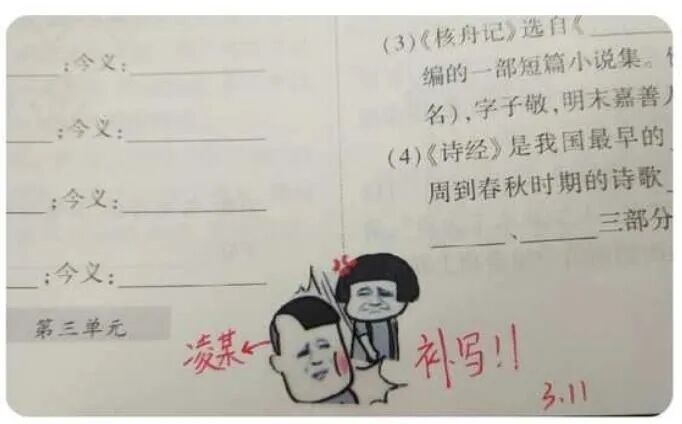 ；今义：
；今义：
；今义：
；今义：
第三单元
(3)《核舟记》选自《
编的一部短篇小说集。
名)，字子敬，明末嘉善人
(4)《诗经》是我国最早的
周到春秋时期的诗歌
、三部分
凌某
补写!!
3.11